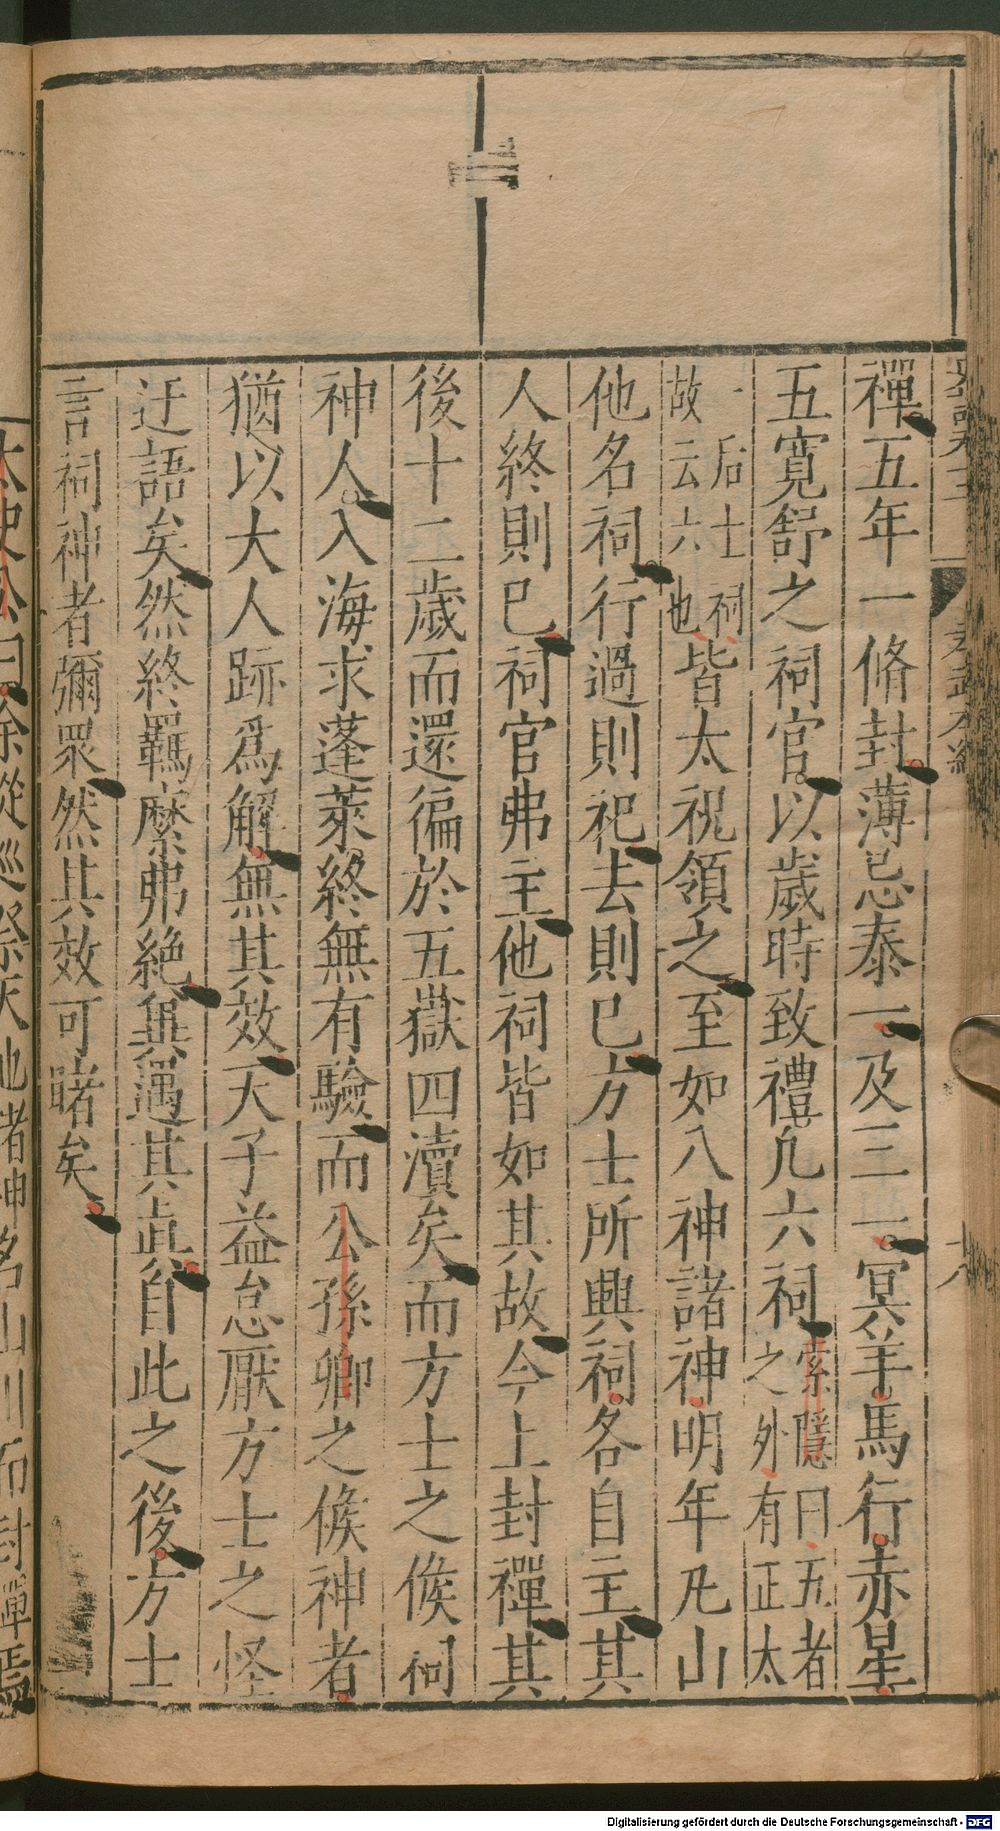 禪五年一脩封薄忌泰一及三一冥羊馬行赤星
五寬舒之祠官以歲時致禮凡六祠索隱曰五者之外有正太
一后土祠故云六也皆太祝領之至如八神諸神明年凡山
他名祠行過則祀去則已方士所興祠各自主其
人終則已祠官弗主他祠皆如其故今上封禪其
後十二歲而還徧於五嶽四瀆矣而方士之候祠
神人入海求蓬萊終無有驗而公孫卿之候神者
猶以大人跡爲解無其效天子益怠厭方士之怪
迂語矣然終羈縻弗絕兾遇其眞自此之後方士
言祠神者彌眾然其效可睹矣
太史公曰余從巡祭天地諸神名山川而封禪焉
Digitalisierung gefördert durch die Deutsche Forschungsgemeinschaft - DFG